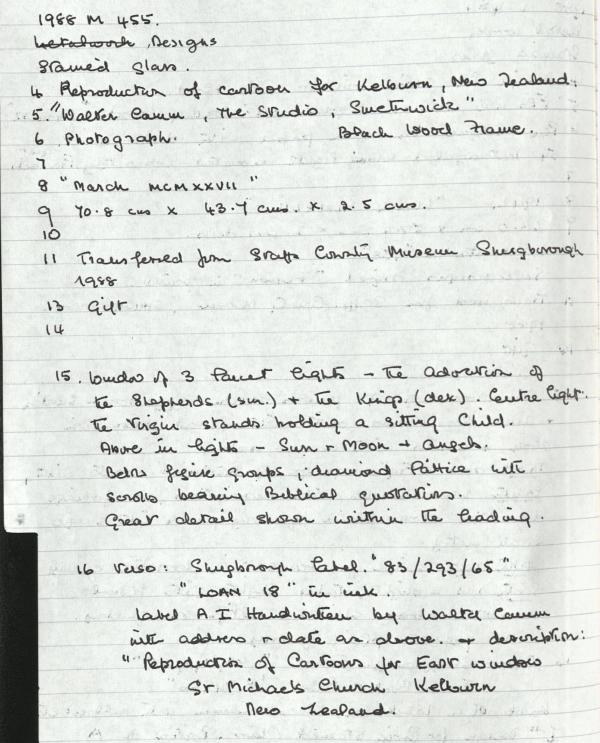 1988 M 455.
Metalwork, Designs
Stained Glass.
4 Reproduction of cartoon for Kelburn, New Zealand.
5. "Walter Camm, The Studio, Smethwick"
6 Photograph. Black Wood Frame.
7
8 "March MCMXXVII"
9 70.8 cms x 43.7 cms. x 2.5 cms.
10
11 Transferred from Staffs County Museum Shugborough
1988
13 Gift
14
15. Window of 3 lights - the adoration of
the Shepherds (sin.) + the Kings (dex). Centre light:
the Virgin stands holding a sitting Child.
Above in lights - Sun + Moon + angels.
Below figure groups, diamond lattice with
scrolls bearing Biblical quotations.
Great detail shown within the leading.
16 Verso: Shugborough label. "83/293/65"
"LOAN 18" in ink.
Label A.I Handwritten by Walter Camm
with address + date as above. + description:
"Reproduction of Cartoons for East window
St Michaels Church Kelburn
New Zealand.